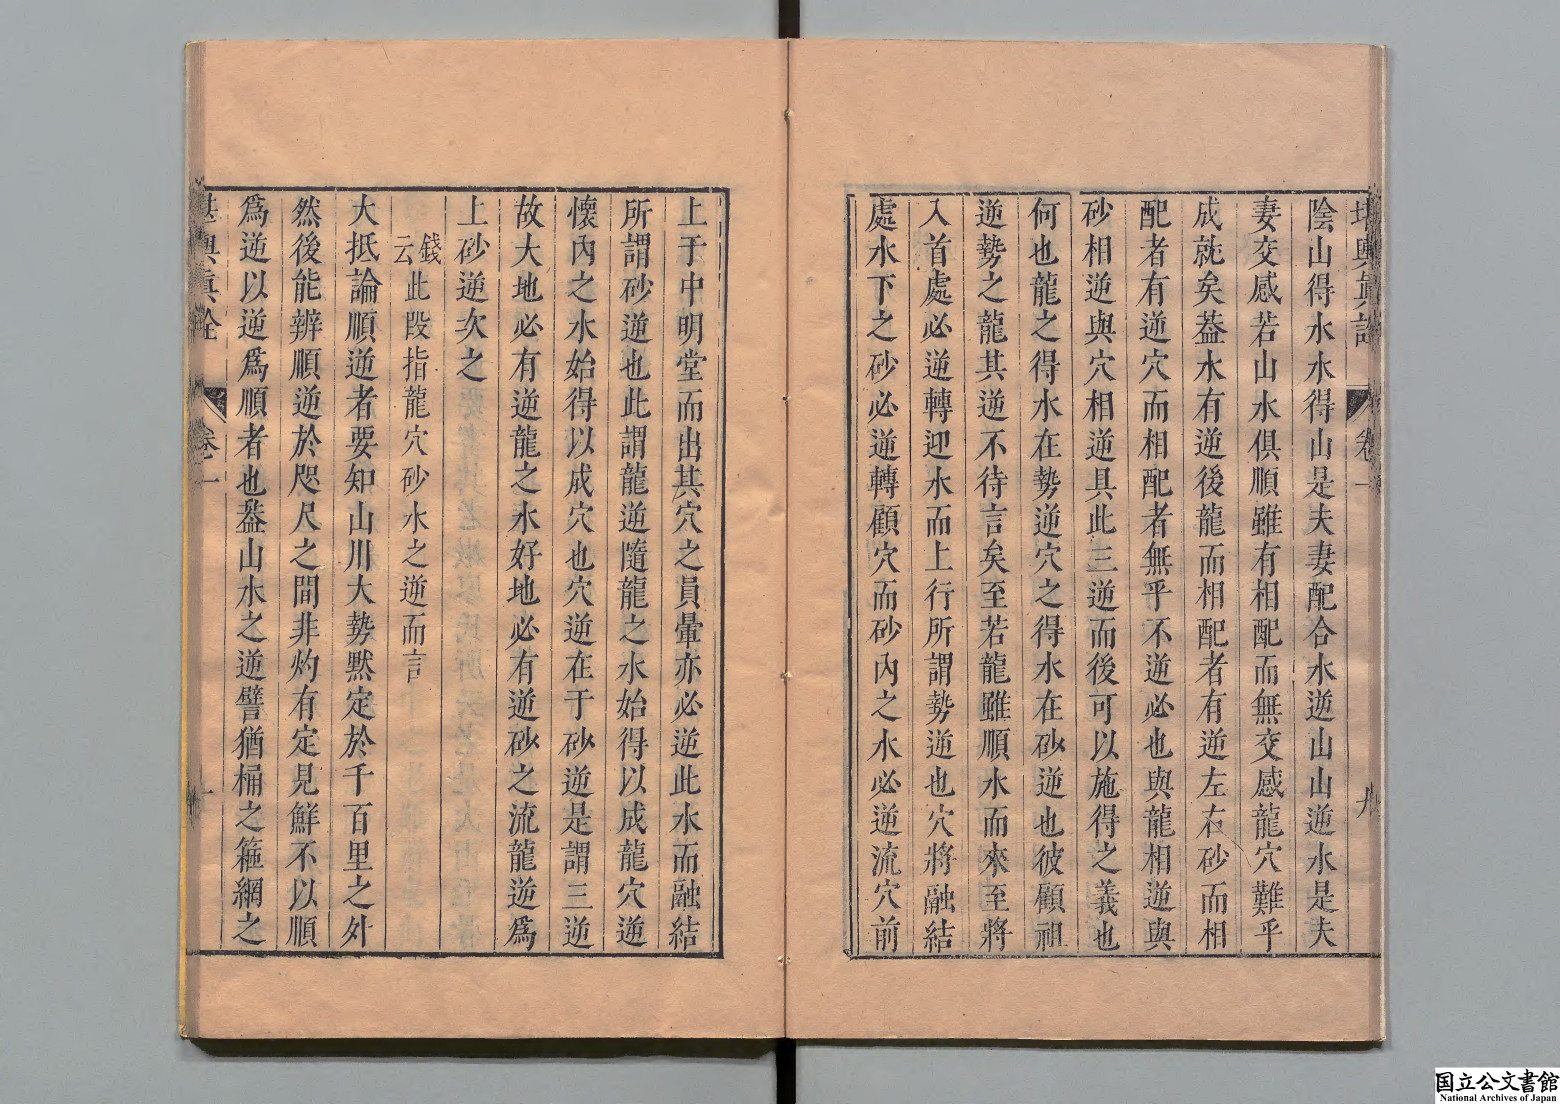 堪輿眞詮 卷一 九
陰山得水水得山是夫妻配合水逆山山逆水是夫
妻交感若山水俱順雖有相配而無交感龍穴難乎
成就矣葢水有逆後龍而相配者有逆左右砂而相
配者有逆穴而相配者無乎不逆必也與龍相逆與
砂相逆與穴相逆具此三逆而後可以施得之義也
何也龍之得水在勢逆穴之得水在砂逆也彼顧祖
逆勢之龍其逆不待言矣至若龍雖順水而來至將
入首處必逆轉迎水而上行所謂勢逆也穴將融結
處水下之砂必逆轉顧穴而砂內之水必逆流穴前
上于中明堂而出其穴之員暈亦必逆此水而融結
所謂砂逆也此謂龍逆隨龍之水始得以成龍穴逆
懷內之水始得以成穴也穴逆在于砂逆是謂三逆
故大地必有逆龍之水好地必有逆砂之流龍逆爲
上砂逆次之
錢云此段指龍穴砂水之逆而言
大抵論順逆者要知山川大勢黙定於千百里之外
然後能辨順逆於咫尺之間非灼有定見鮮不以順
爲逆以逆爲順者也葢山水之逆譬猶桶之箍網之
堪輿眞詮 卷一 十
国立公文書館
National Archives of Japan